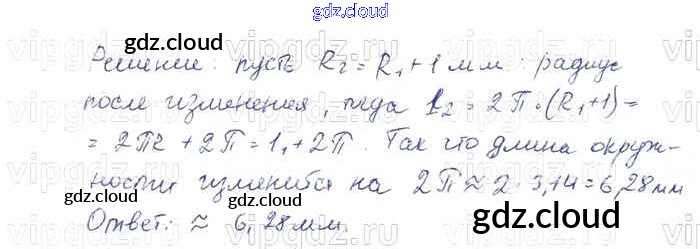 gdz.cloud
gdz.cloud gdz.cloud
Решение: пусть R₂ = R₁ + 1 мм : радиус
после изменения, тогда l₂ = 2π·(R₁+1) =
= 2πR + 2π = l₁ + 2π. Так что длина окруж-
ности изменится на 2π ≈ 2·3,14 = 6,28 мм
Ответ: ≈ 6,28 мм.
gdz.cloud gdz.cloud